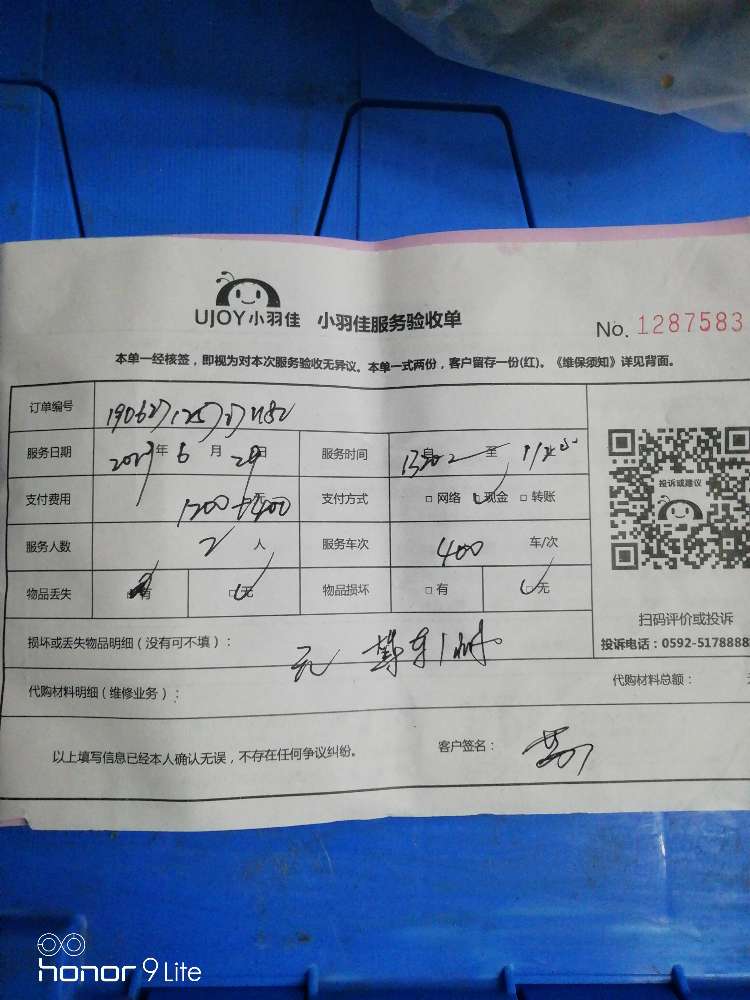 UJOY小羽佳 小羽佳服务验收单 No. 1287583
本单一经核签，即视为对本次服务验收无异议。本单一式两份，客户留存一份(红)。《维保须知》详见背面。
订单编号
服务日期 年 6 月 29 日 服务时间 自 至
投诉或建议
支付费用 1200+400 元 支付方式 □ 网络 □ 现金 □ 转账
服务人数 2 人 服务车次 400 车/次
物品丢失 □ 有 □ 无 物品损坏 □ 有 □ 无
扫码评价或投诉
损坏或丢失物品明细（没有可不填）： 无
投诉电话：0592-5178888
代购材料明细（维修业务）： 代购材料总额：
以上填写信息已经本人确认无误，不存在任何争议纠纷。 客户签名：
honor 9 Lite